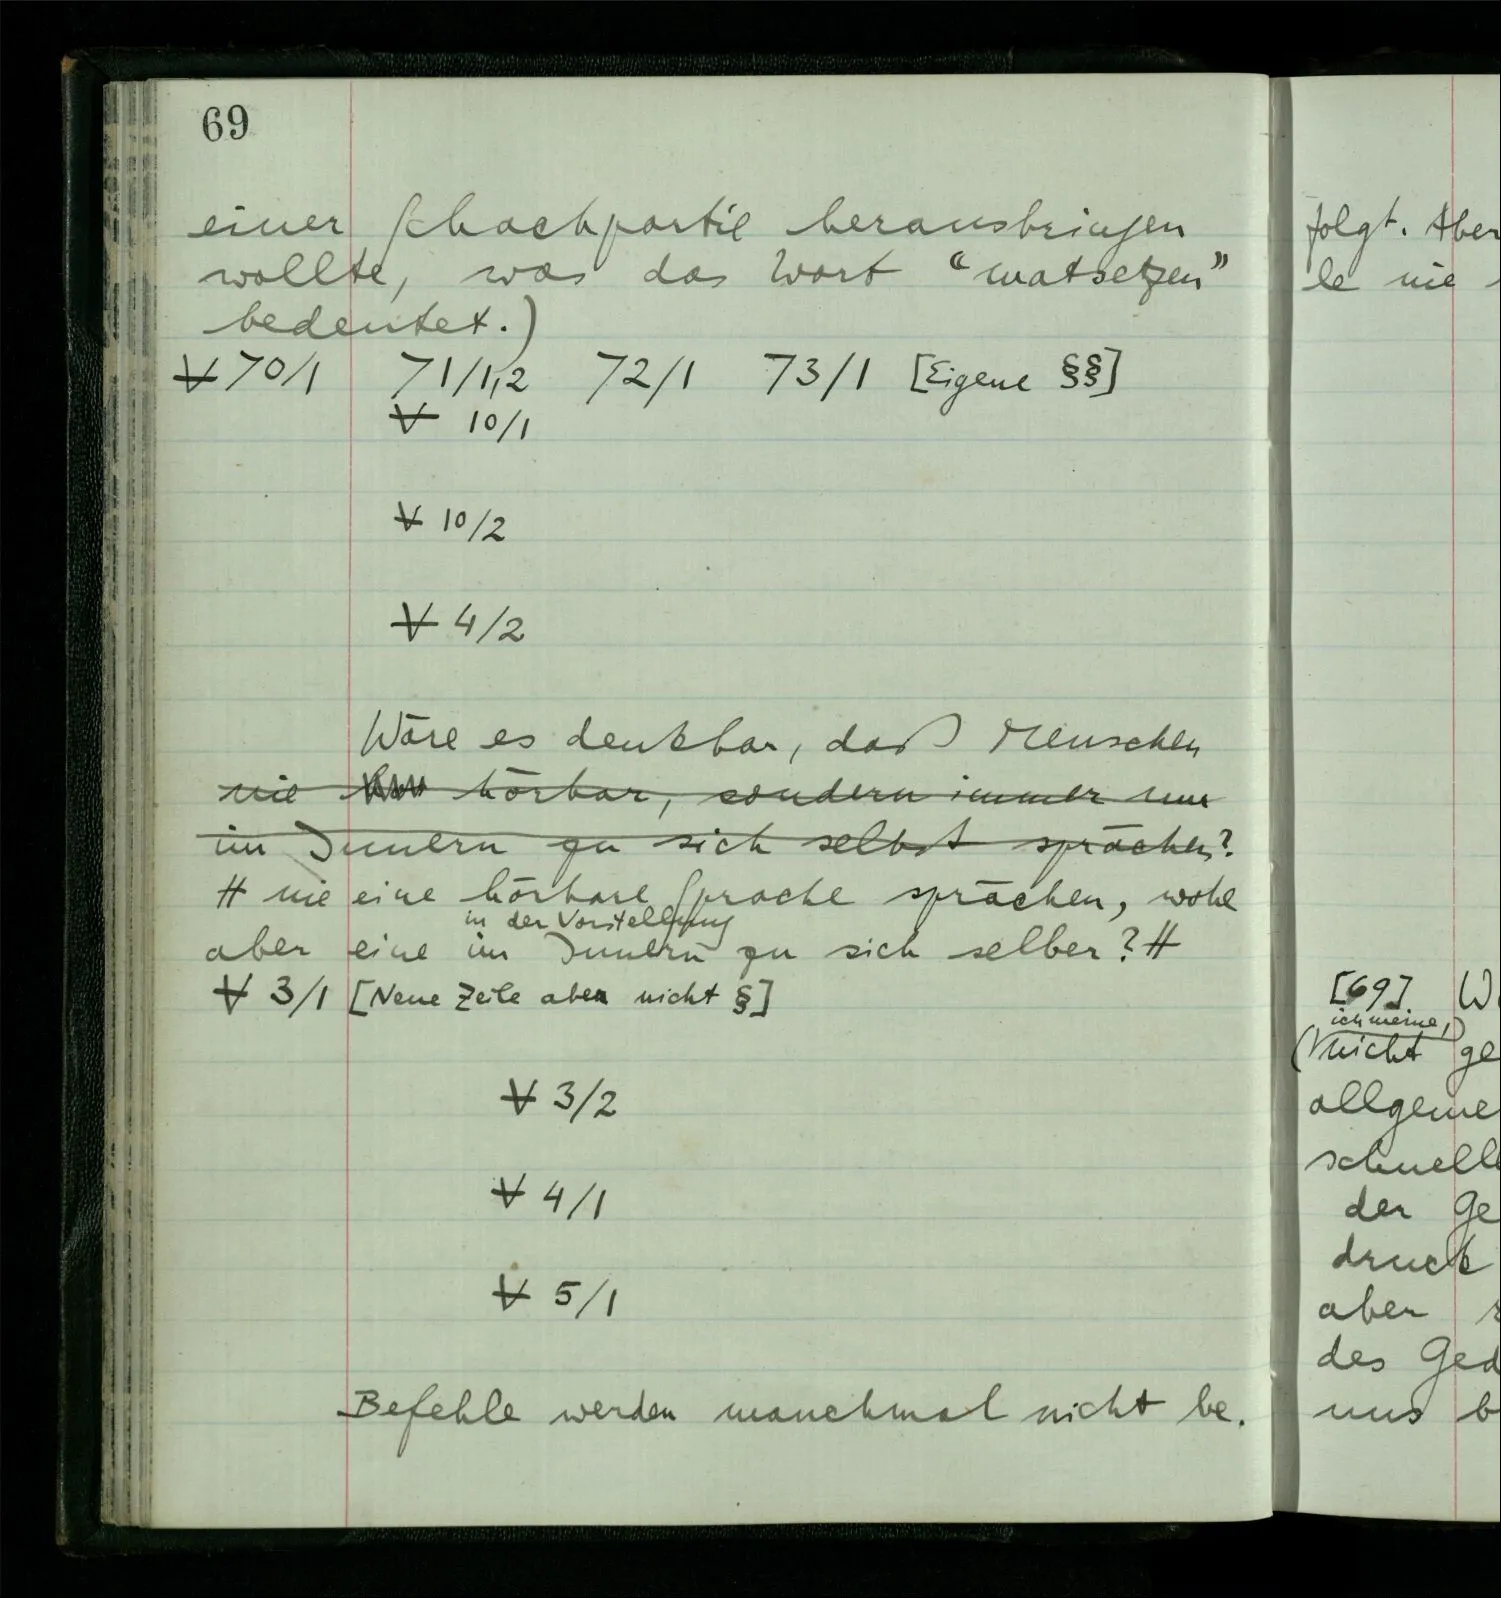 69
einer Schachpartie herausbringen
wollte, was das Wort “matsetzen”
bedeutet.)
∀ 70/1 71/1,2 72/1 73/1 [Eigene §§]
∀ 10/1
∀ 10/2
∀ 4/2
Wäre es denkbar, daß Menschen
nie hörbar, sondern immer nur
im Innern zu sich selbst sprächen?
# nie eine hörbare Sprache sprächen, wohl
in der Vorstellung
aber eine im Innern zu sich selber? #
∀ 3/1 [Neue Zeile aber nicht §]
∀ 3/2
∀ 4/1
∀ 5/1
Befehle werden manchmal nicht be-
folgt. Aber
le nie
[69] W
ich meine,
(nicht ge
allgeme
schnelle
der Ge
druck
aber
des Ged
uns b